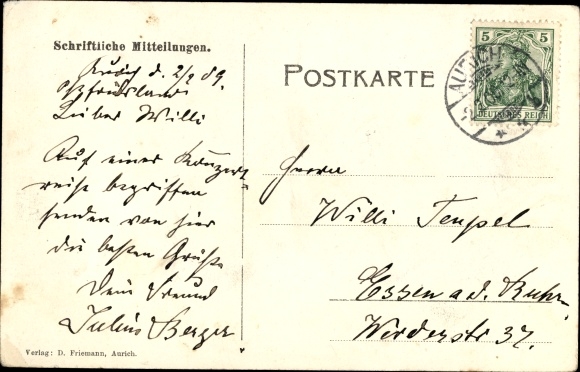 Schriftliche Mitteilungen.
Aurich d. 2/2 09.
Ostfriesland
Lieber Willi
Auf einer Konzert=
reise begriffen
senden von hier
die besten Grüße
Dein Freund
Julius Berger
Verlag: D. Friemann, Aurich.
POSTKARTE
5 5
DEUTSCHES REICH
AURICH
Herrn
Willi Tempel
Essen a.d. Ruhr.
Werderstr 37.